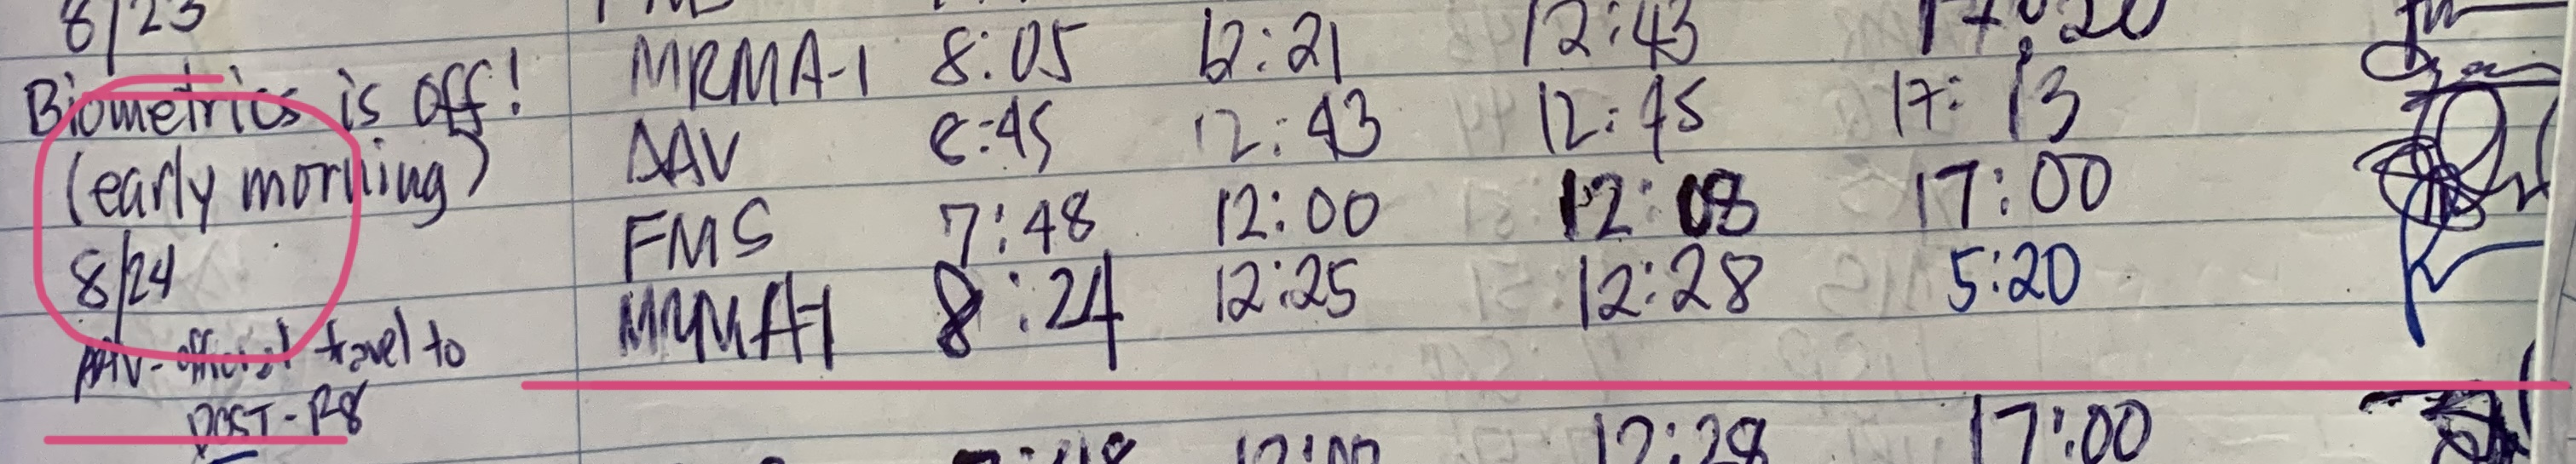 8/23
MRMA-1 8:05 12:21 12:43 17:20
Biometrics is off!
AAV 8:45 12:43 12:45 17:13
(early morning)
FMS 7:48 12:00 12:08 17:00
8/24
MRMA-1 8:24 12:25 12:28 5:20
AAV - official travel to
DOST - R8
12:28 17:00